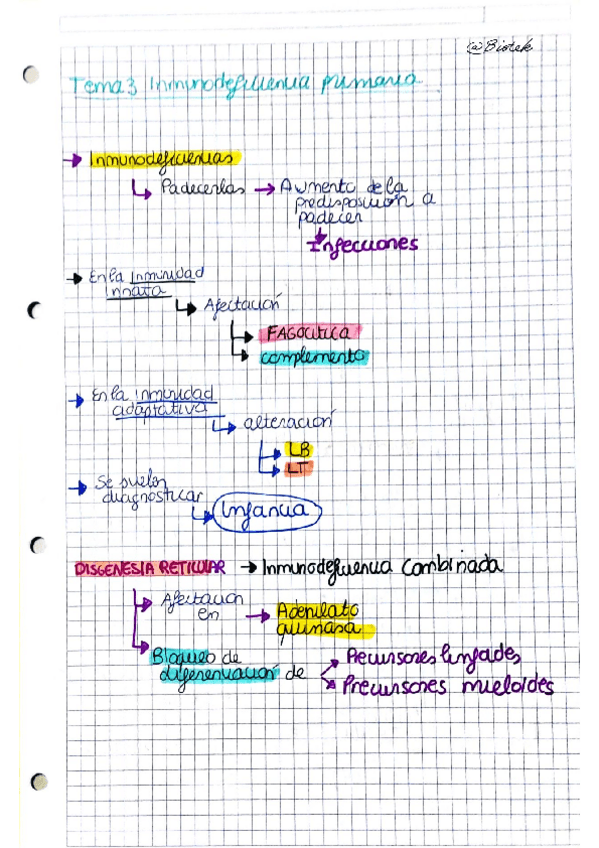 @Biotek
Tema 3 Inmunodeficiencia primaria
→ Inmunodeficiencias
↳ Padecerlas → Aumento de la
predisposición a
padecer
↓
Infecciones
→ En la inmunidad
innata
↳ Afectación
↳ FAGOCITICA
↳ complemento
→ En la inmunidad
adaptativa
↳ alteración
↳ LB
↳ LT
→ Se suelen
diagnosticar
↳ Infancia
DISGENESIA RETICULAR → Inmunodeficiencia Combinada
↳ Afectación
en → Adenilato
quinasa
↳ Bloqueo de
diferenciación de
Precursores linfoides
Precursores mieloides